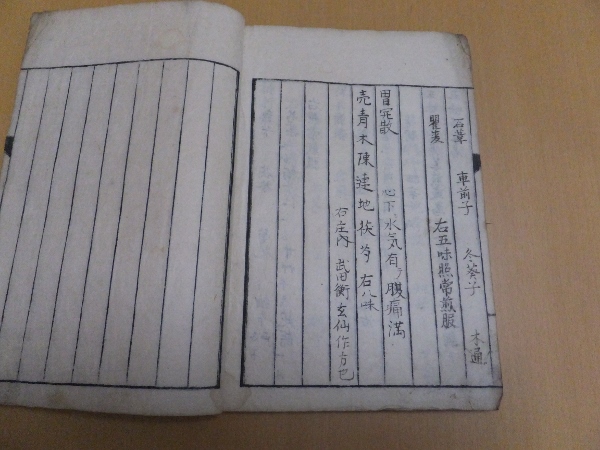 石葦 車前子 冬葵子 木通
瞿麦 右五味照常煎服
胃宛散 心下ニ水気有テ腹痛満
売青木陳連地茯芩 右八味
右庄内 武田衡玄仙作方也